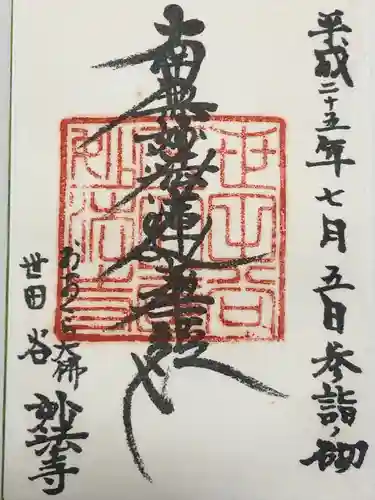 平成二十五年七月五日参詣ノ砌
南無妙法蓮華経
おおくら大佛
世田谷 妙法寺